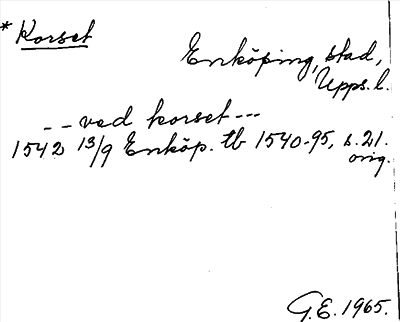 * Korset
Enköping, stad,
Upps. l.
-- ved korset ---
1542 13/9 Enköp. tb 1540-95, s. 21.
orig.
G.E. 1965.